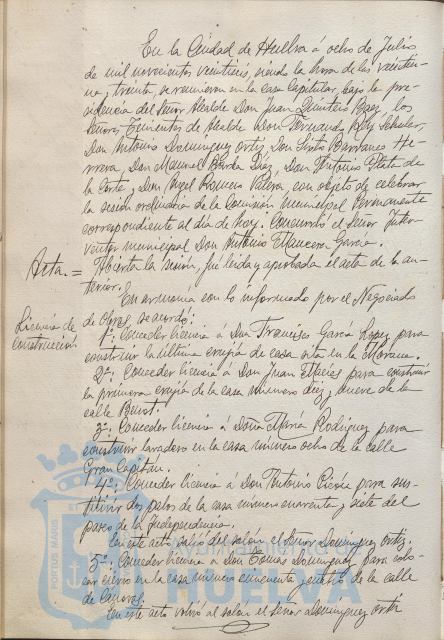 En la Ciudad de Huelva á ocho de Julio
de mil novecientos veintiseis, siendo la hora de las veintiu-
na y treinta, se reunieron en la Casa Capitular, bajo la pre-
sidencia del Señor Alcalde Don Juan Quintero Baez, los
Señores Tenientes de Alcalde Don Fernando Rey
Don Antonio Dominguez Ortiz, Don Sixto Barranco He-
rrera, Don Manuel Barba Diaz, Don Antonio Plata de
la Corte y Don Angel Romero Valera, con objeto de celebrar
la sesión ordinaria de la Comisión Municipal Permanente
correspondiente al dia de hoy. Concurrió el Señor Inter-
ventor municipal Don Antonio Mancera Garcia.
Acta. =
Abierta la sesión, fué leida y aprobada el acta de la an-
terior.
Licencia de
construcción
En armonía con lo informado por el Negociado
de Obras se acordó:
1º: Conceder licencia á Don Francisco Garcia Lopez para
construir la última crugía de casa sita en la
2º: Conceder licencia á Don Juan Macias para construir
la primera crugía de la casa número diez y nueve de la
calle
3º: Conceder licencia á Doña María Rodriguez para
construir lavadero en la casa número ocho de la calle
Gran Capitan.
4º: Conceder licencia á Don Antonio para sus-
tituir dos palos de la casa número cuarenta y siete del
paseo de la Independencia.
En este acto volvió del salón el Señor Dominguez Ortiz.
5º: Conceder licencia á Don Tomas Dominguez para colo-
car en la casa número cincuenta y cuatro de la calle
de Canovas.
En este acto volvió al salón el Señor Dominguez Ortiz
PORTUS MARIS
Ayuntamiento de
HUELVA